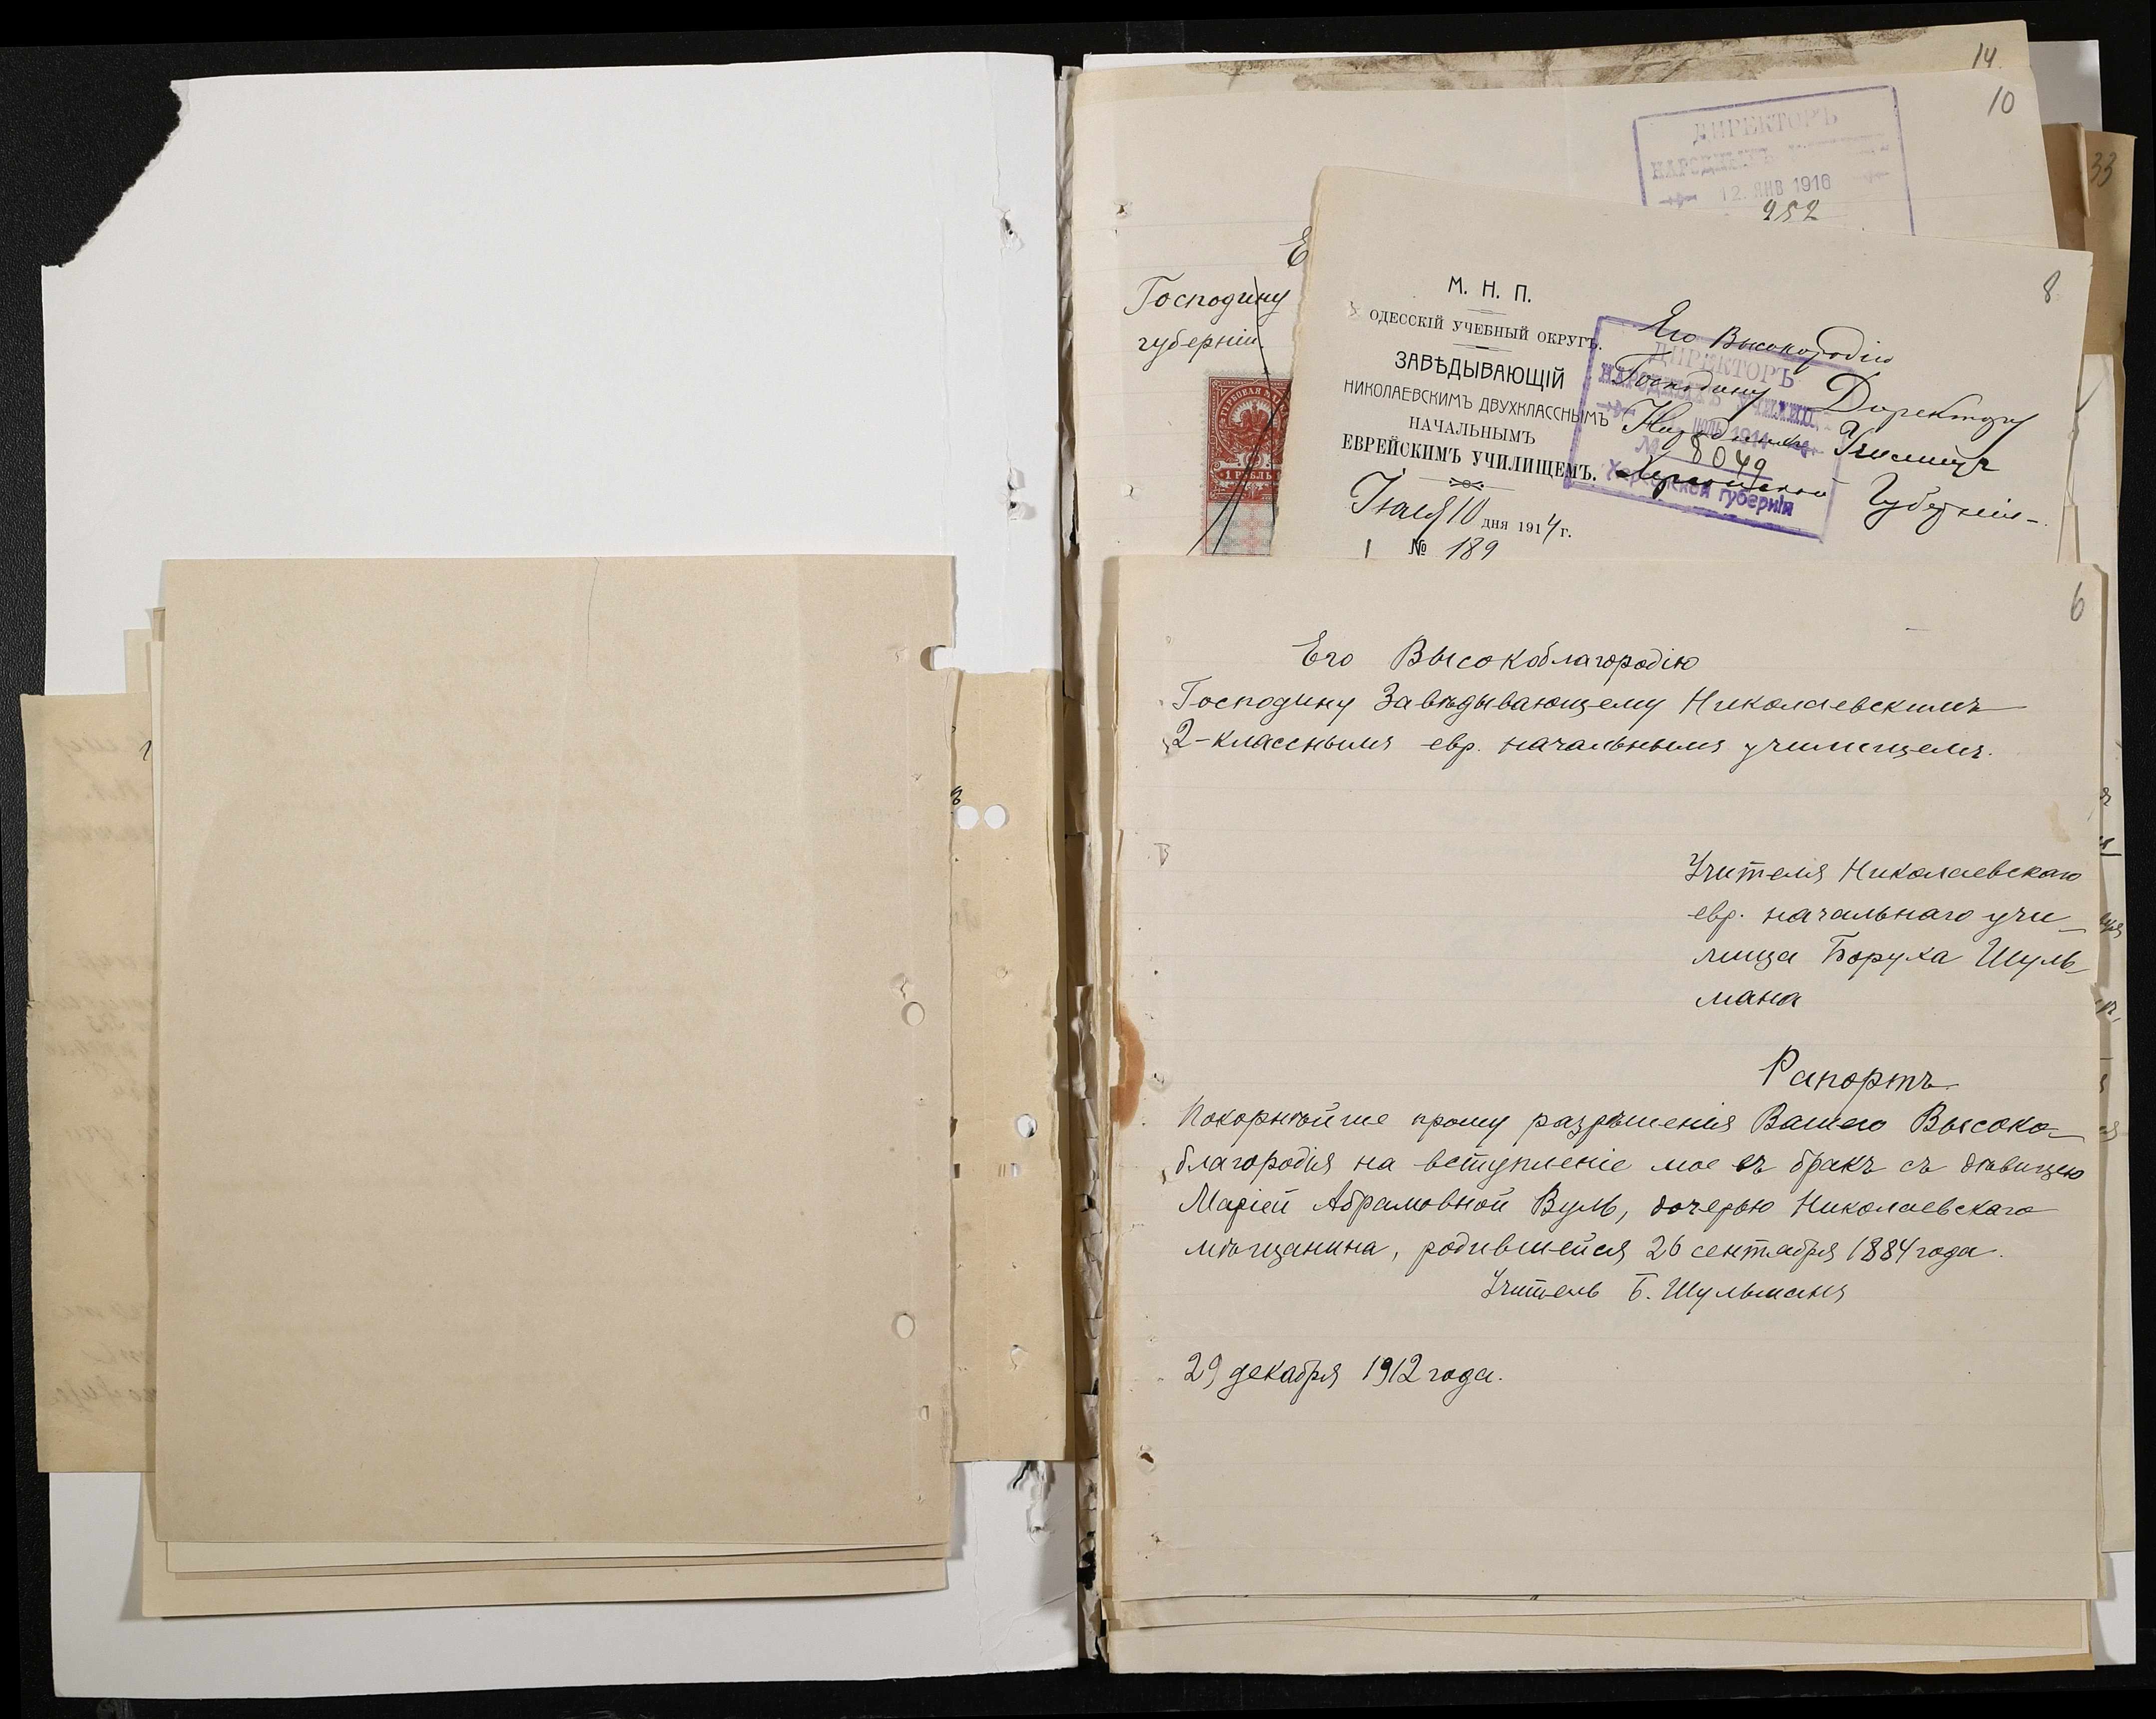 14
10
ДИРЕКТОРЪ
НАРОДНЫХЪ
12. ЯНВ 1916
252
33
Господину
губерніи.
1 РУБЛЬ
8
М. Н. П.
ОДЕССКІЙ УЧЕБНЫЙ ОКРУГЪ.
ЗАВѢДЫВАЮЩІЙ
НИКОЛАЕВСКИМЪ ДВУХКЛАССНЫМЪ
НАЧАЛЬНЫМЪ
ЕВРЕЙСКИМЪ УЧИЛИЩЕМЪ.
Іюля 10 дня 1914 г.
№ 189
Его Высокородію
Господину Директору
Народныхъ Училищъ
Херсонской Губерніи.
ДИРЕКТОРЪ
НАРОДНЫХЪ УЧИЛИЩЪ
1914
№ 8049
Херсонской губерніи
6
Его Высокоблагородію
Господину Завѣдывающему Николаевскимъ
2-класснымъ евр. начальнымъ училищемъ.
Учителя Николаевскаго
евр. начальнаго учи-
лища Боруха Шуль-
мана
Рапортъ
Покорнѣйше прошу разрѣшенія Вашего Высоко-
благородія на вступленіе мое въ бракъ съ дѣвицею
Маріей Абрамовной Вуль, дочерью Николаевскаго
мѣщанина, родившейся 26 сентября 1884 года.
Учитель Б. Шульманъ
29 декабря 1912 года.